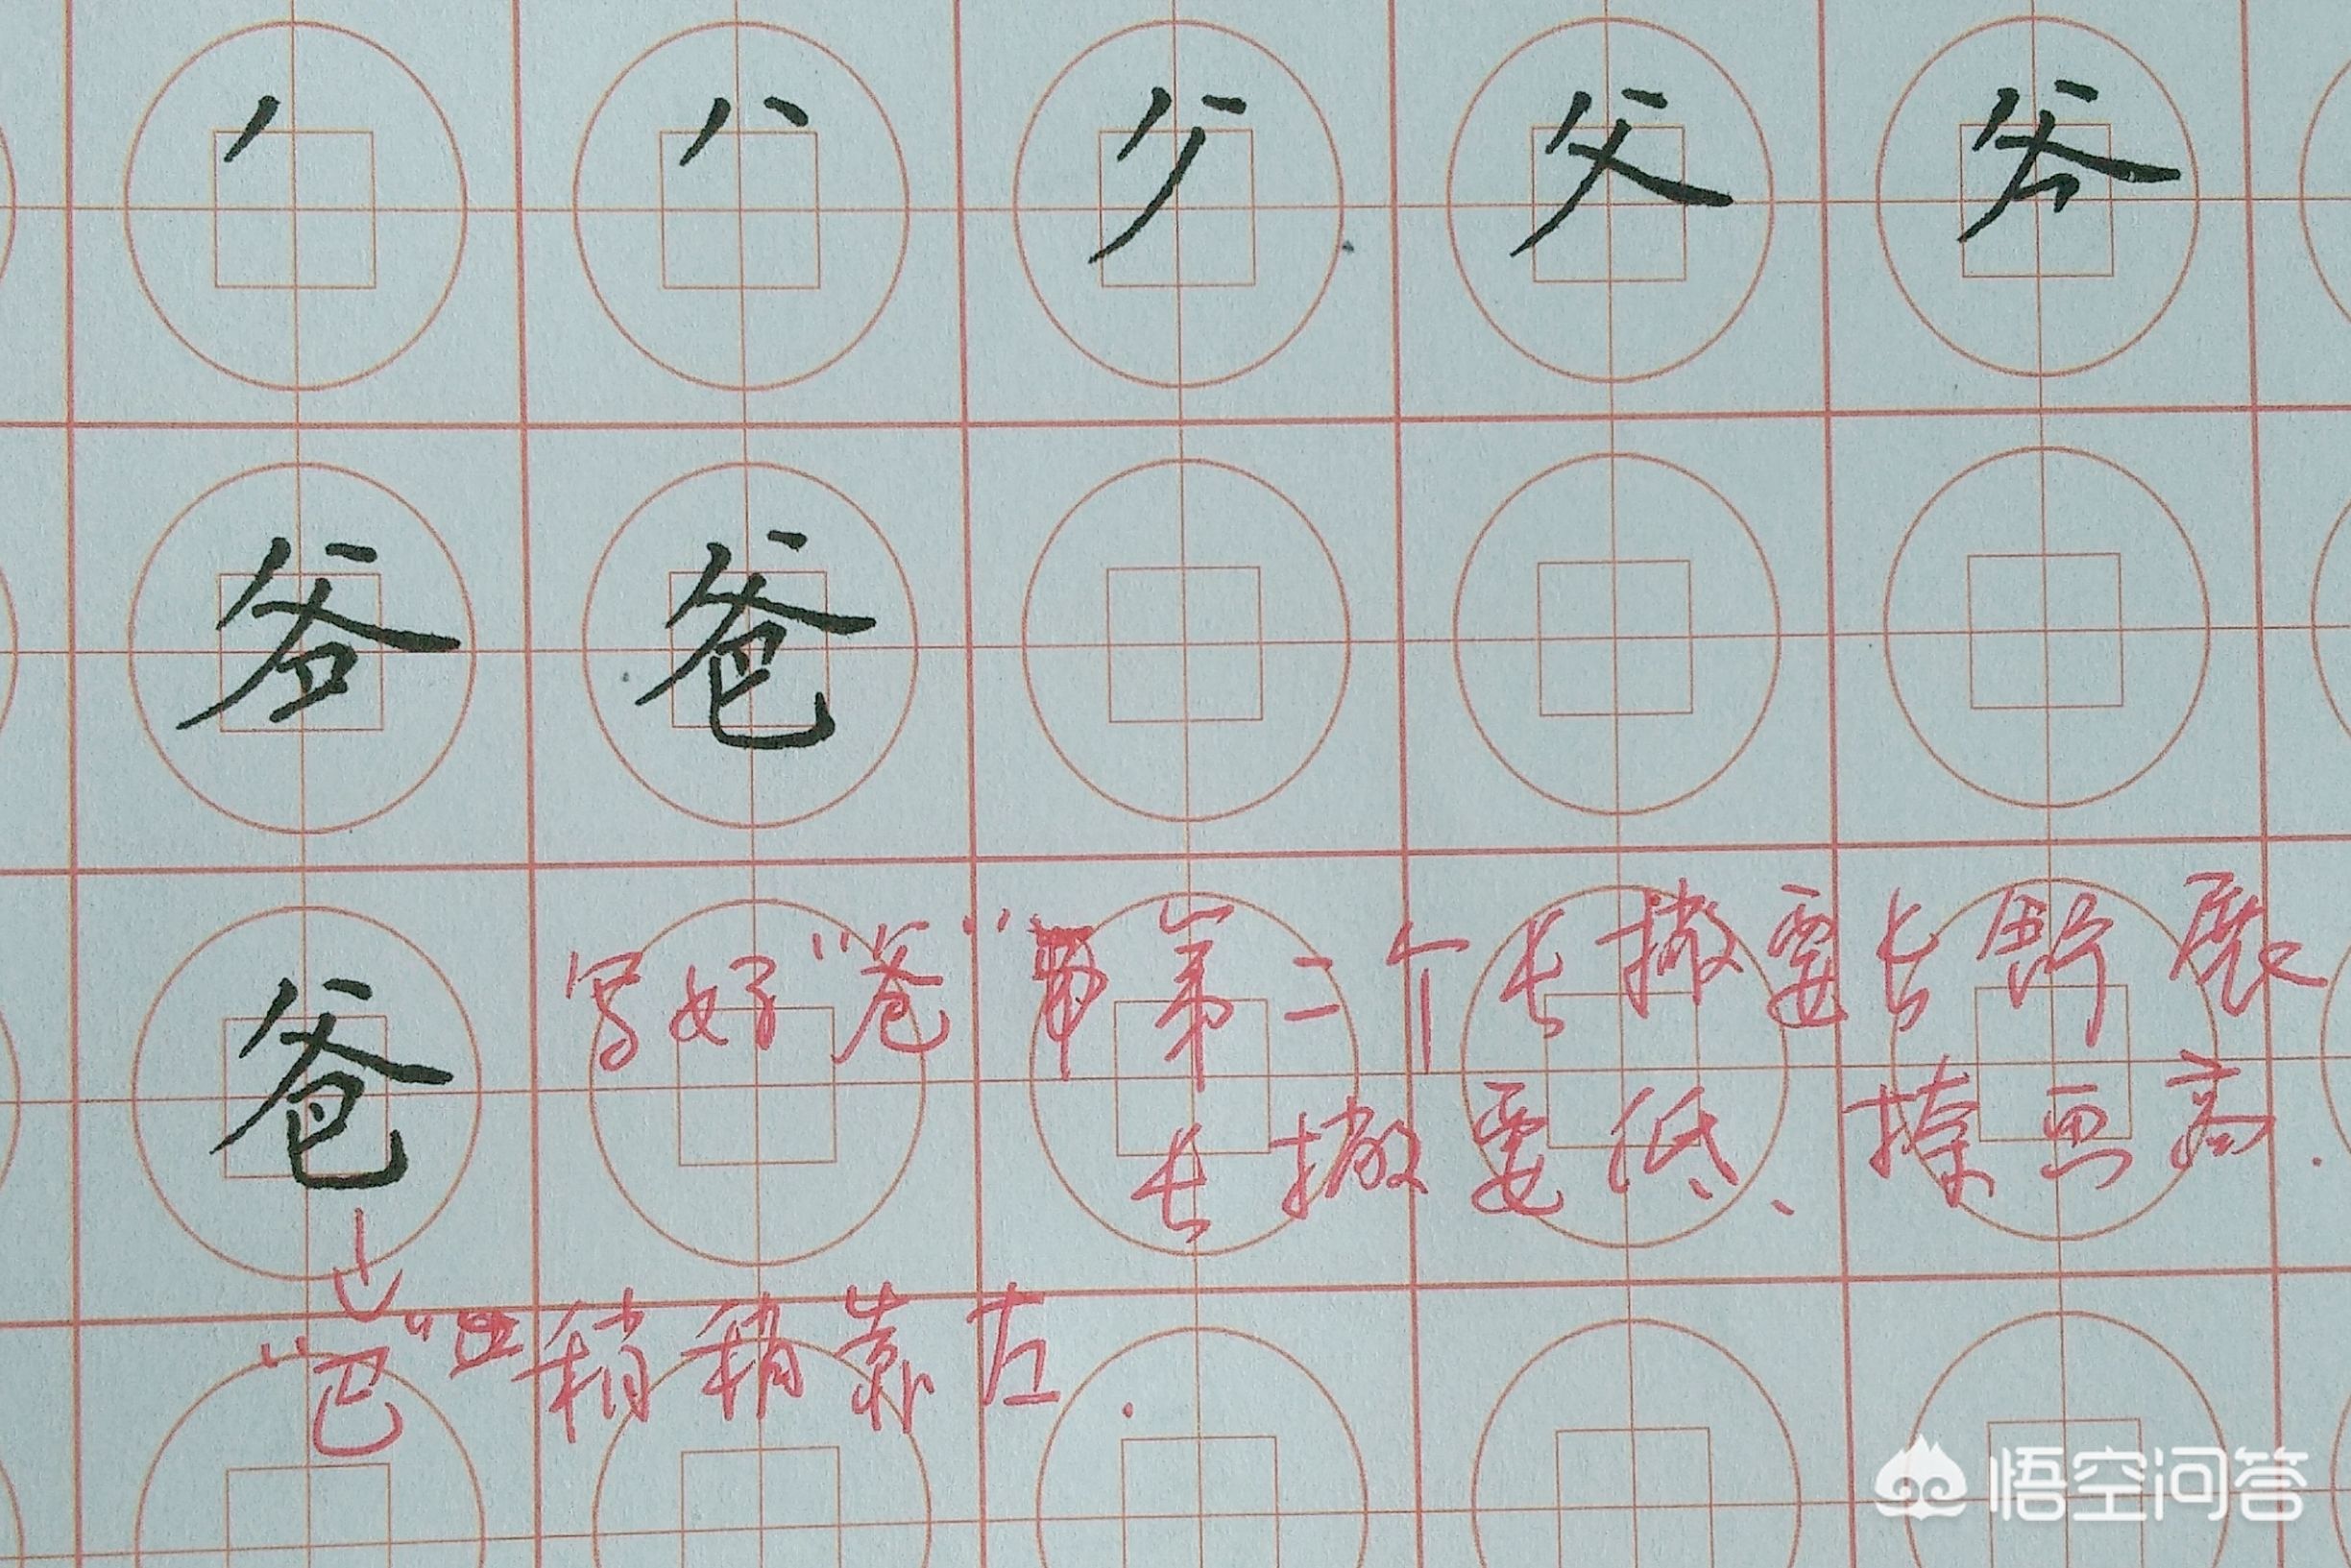 丿 八 父 爸
爸
爸 写好"爸"第二个长撇要长舒展
长撇要低、捺画高.
"巴"稍稍靠左.
悟空问答